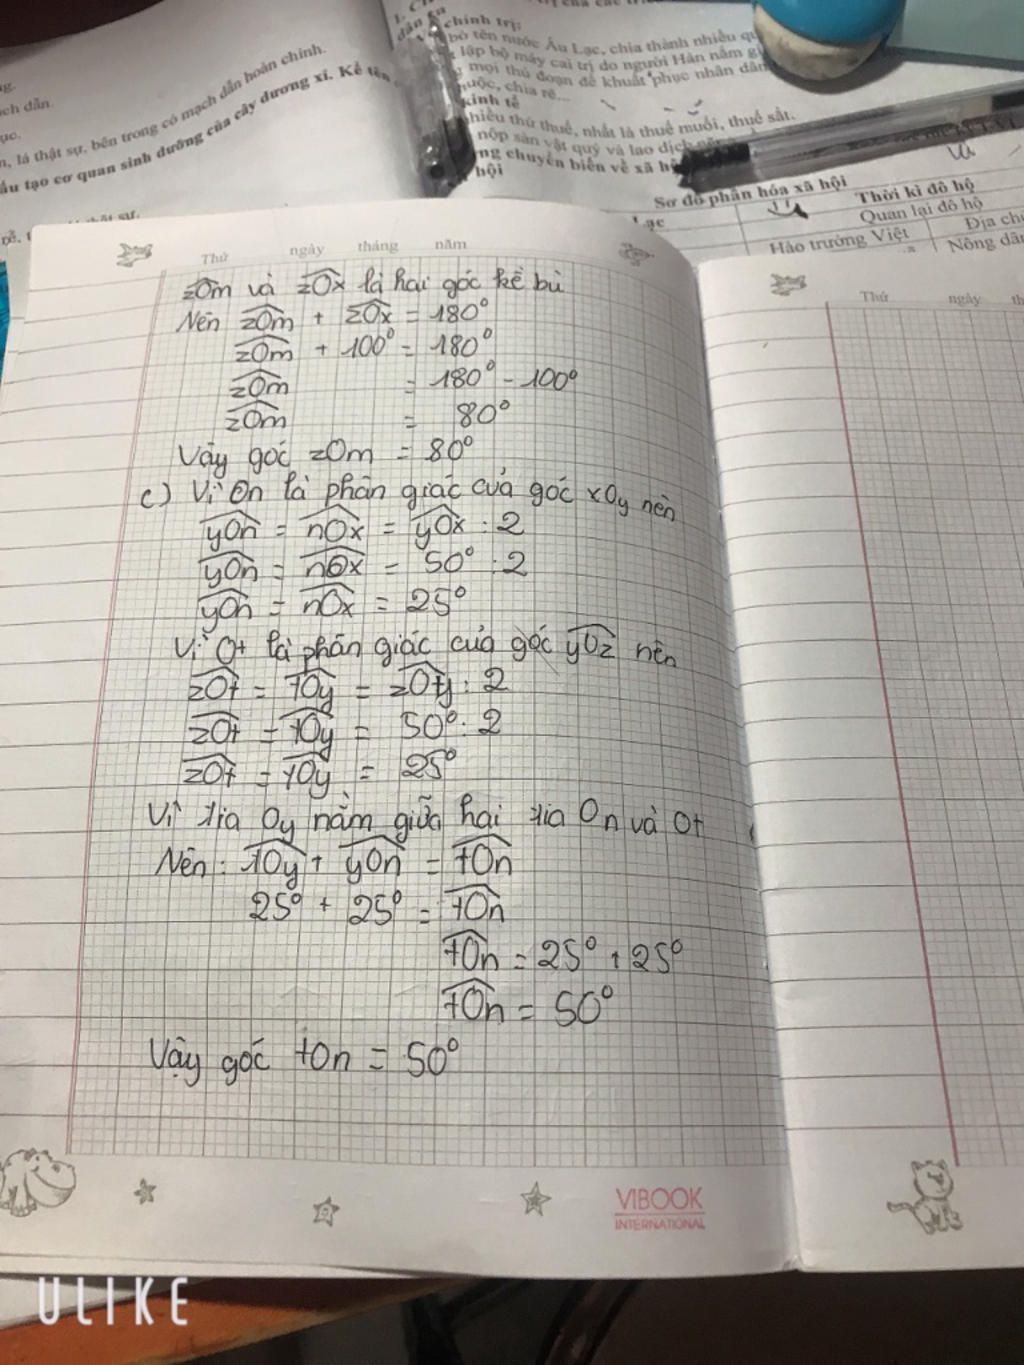 ch dẫn.
n, lá thật sự, bên trong có mạch dẫn hoàn chỉnh.
ấu tạo cơ quan sinh dưỡng của cây dương xỉ. Kể tên
chính trị:
bỏ tên nước Âu Lạc, chia thành nhiều
lập bộ máy cai trị do người Hán nắm
mọi thủ đoạn để khuất phục nhân dân
uộc, chia rẽ...
kinh tế
hiều thứ thuế, nhất là thuế muối, thuế sắt.
nộp sản vật quý và lao dịch
ng chuyển biến về xã
hội
Sơ đồ phân hóa xã hội
Lạc
Thời kì đô hộ
Quan lại đô hộ
Hào trưởng Việt
Địa
Nông
Thứ ngày tháng năm
zOm và zOx là hai góc kề bù
Nên zOm + zOx = 180°
zOm + 100° = 180°
zOm = 180° - 100°
zOm = 80°
Vậy góc zOm = 80°
c) Vì On là phân giác của góc xOy nên
yOn = nOx = yOx : 2
yOn = nOx = 50° : 2
yOn = nOx = 25°
Vì Ot là phân giác của góc yOz nên
zOt = tOy = zOy : 2
zOt = tOy = 50° : 2
zOt = tOy = 25°
Vì tia Oy nằm giữa hai tia On và Ot
Nên : tOy + yOn = tOn
25° + 25° = tOn
tOn = 25° + 25°
tOn = 50°
Vậy góc tOn = 50°
VIBOOK
INTERNATIONAL
Thứ ngày th
ULIKE